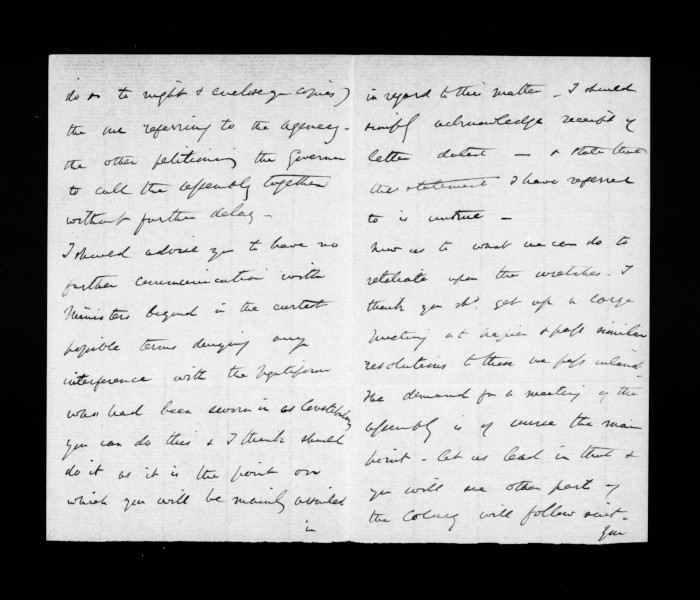 do so to night & enclose you copies)
the one referring to the agency -
the other petitioning the Governor
to call the assembly together
without further delay -
I should advise you to have no
further communication with
Ministers beyond in the curtest
possible terms denying any
interference with the
who had been sworn in as Constabulary
you can do this & I think should
do it as it is the point on
which you will be mainly assailed
in
in regard to this matter - I should
simply acknowledge receipt of
letter dated — & state that
the statement I have referred
to is untrue -
Now as to what we can do to
retaliate upon the wretches - I
think you shd. get up a large
meeting at Napier & pass similar
resolutions to those we pass inland.
The demand for a meeting of the
assembly is of course the main
point - let us lead in that &
you will see other parts of
the Colony will follow suit -
Your